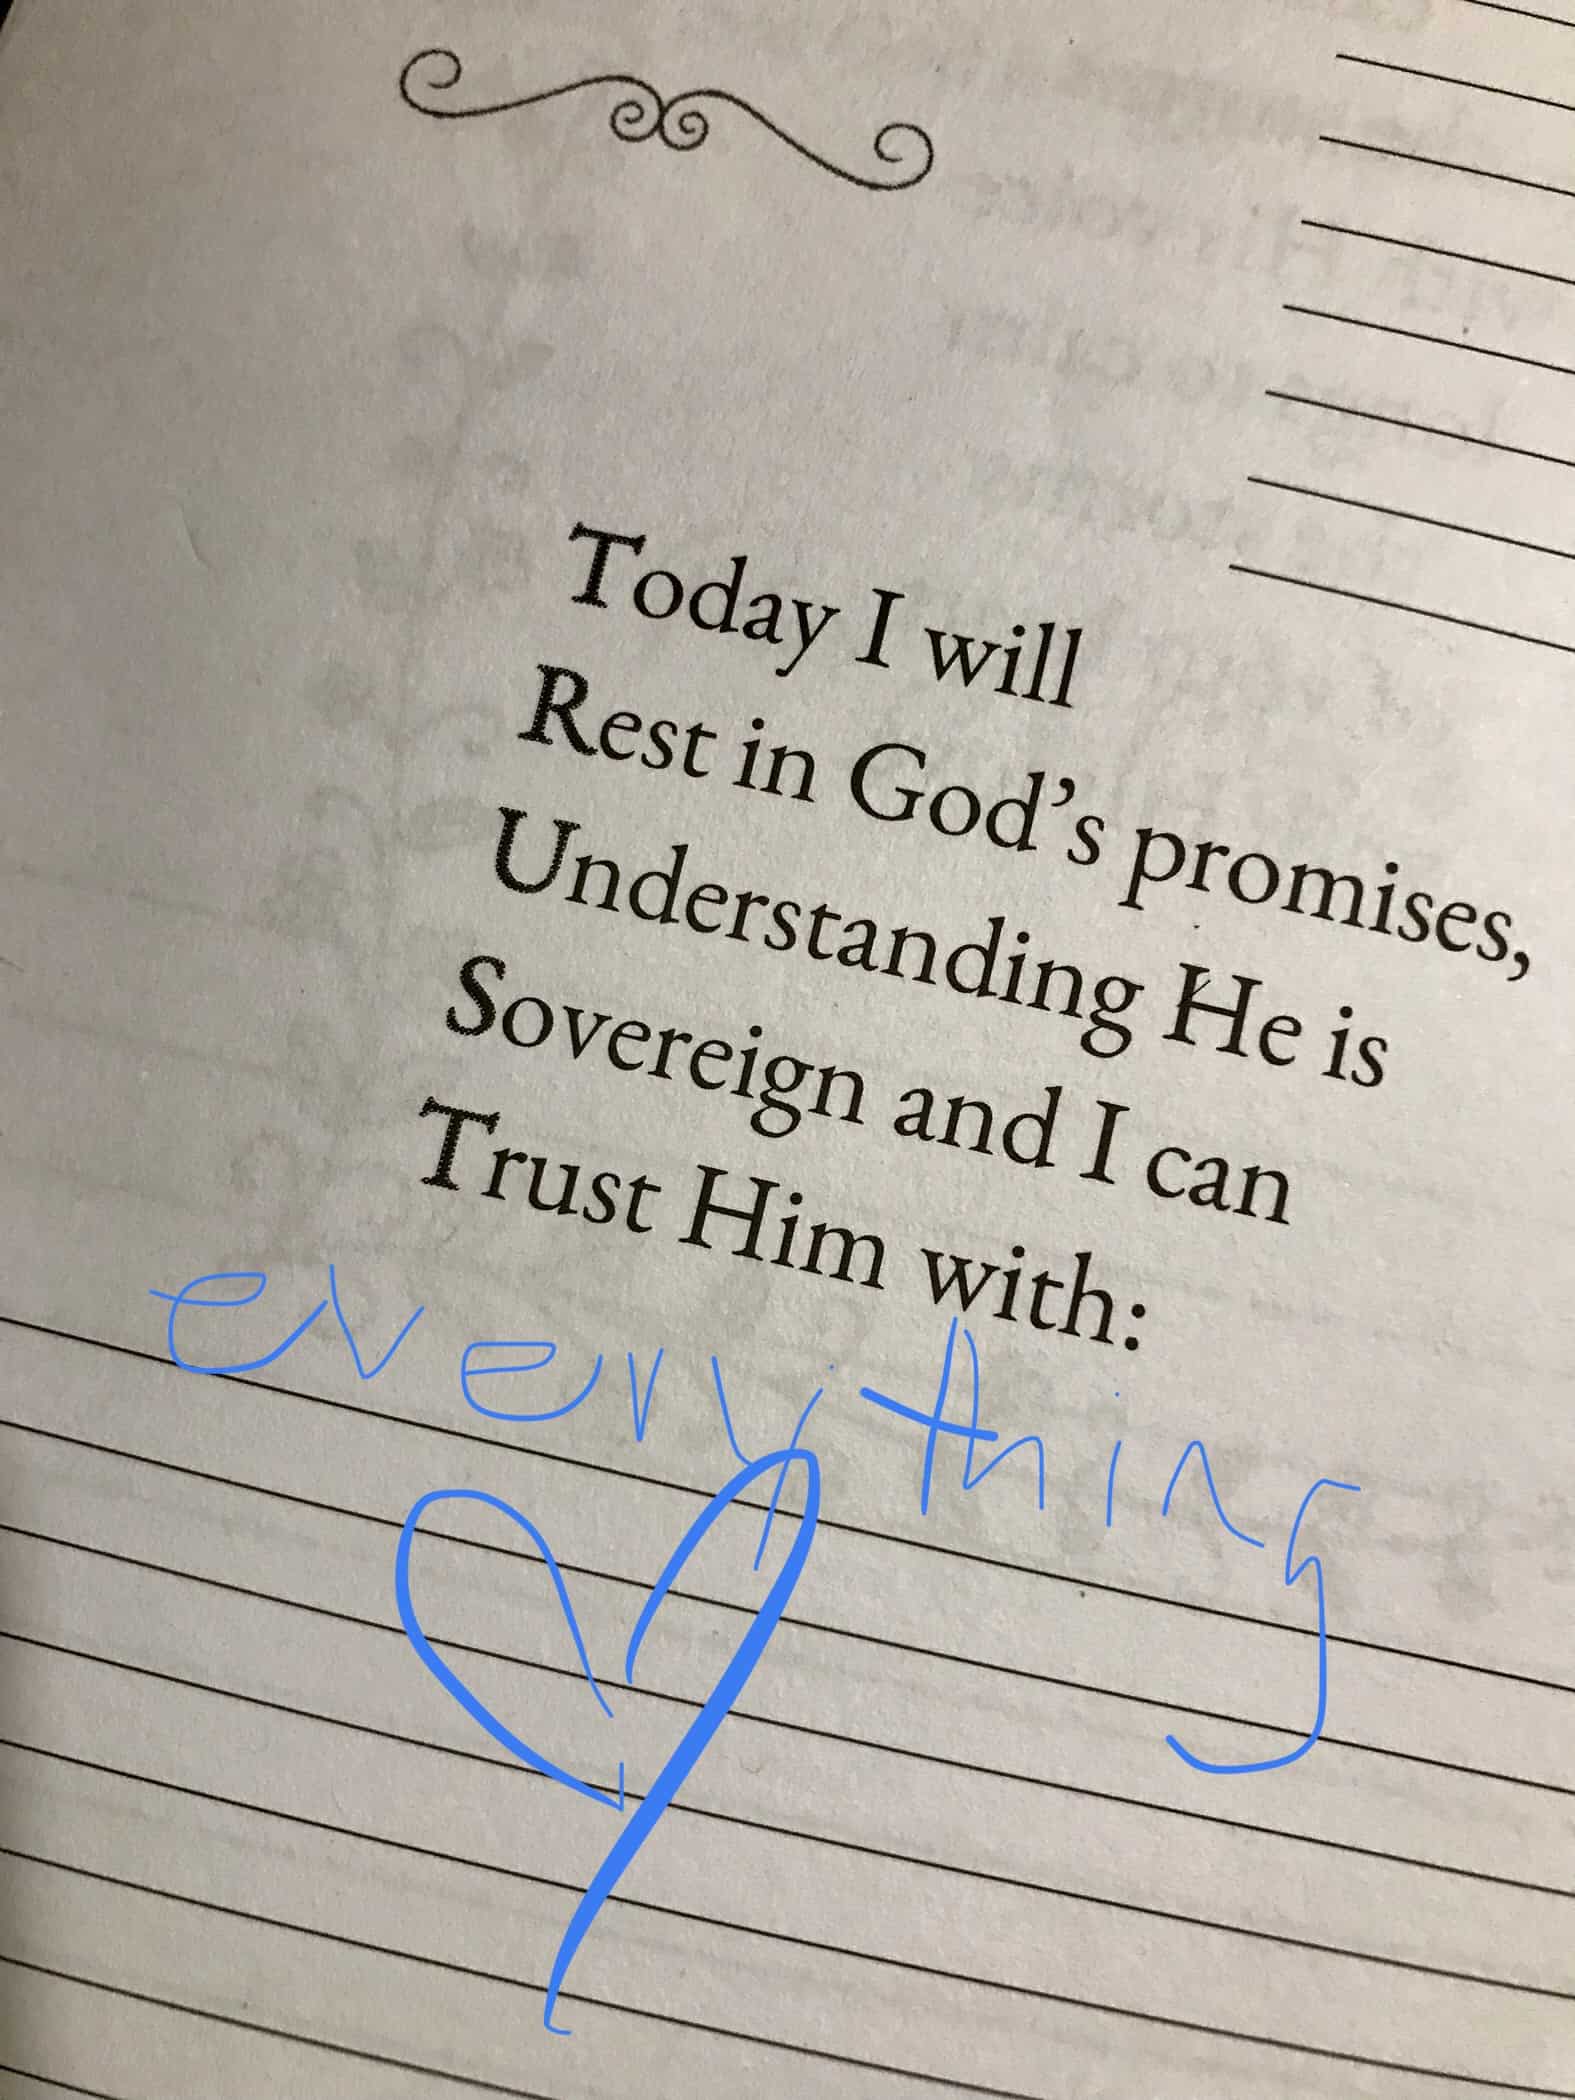 Today I will
Rest in God’s promises,
Understanding He is
Sovereign and I can
Trust Him with:
everything